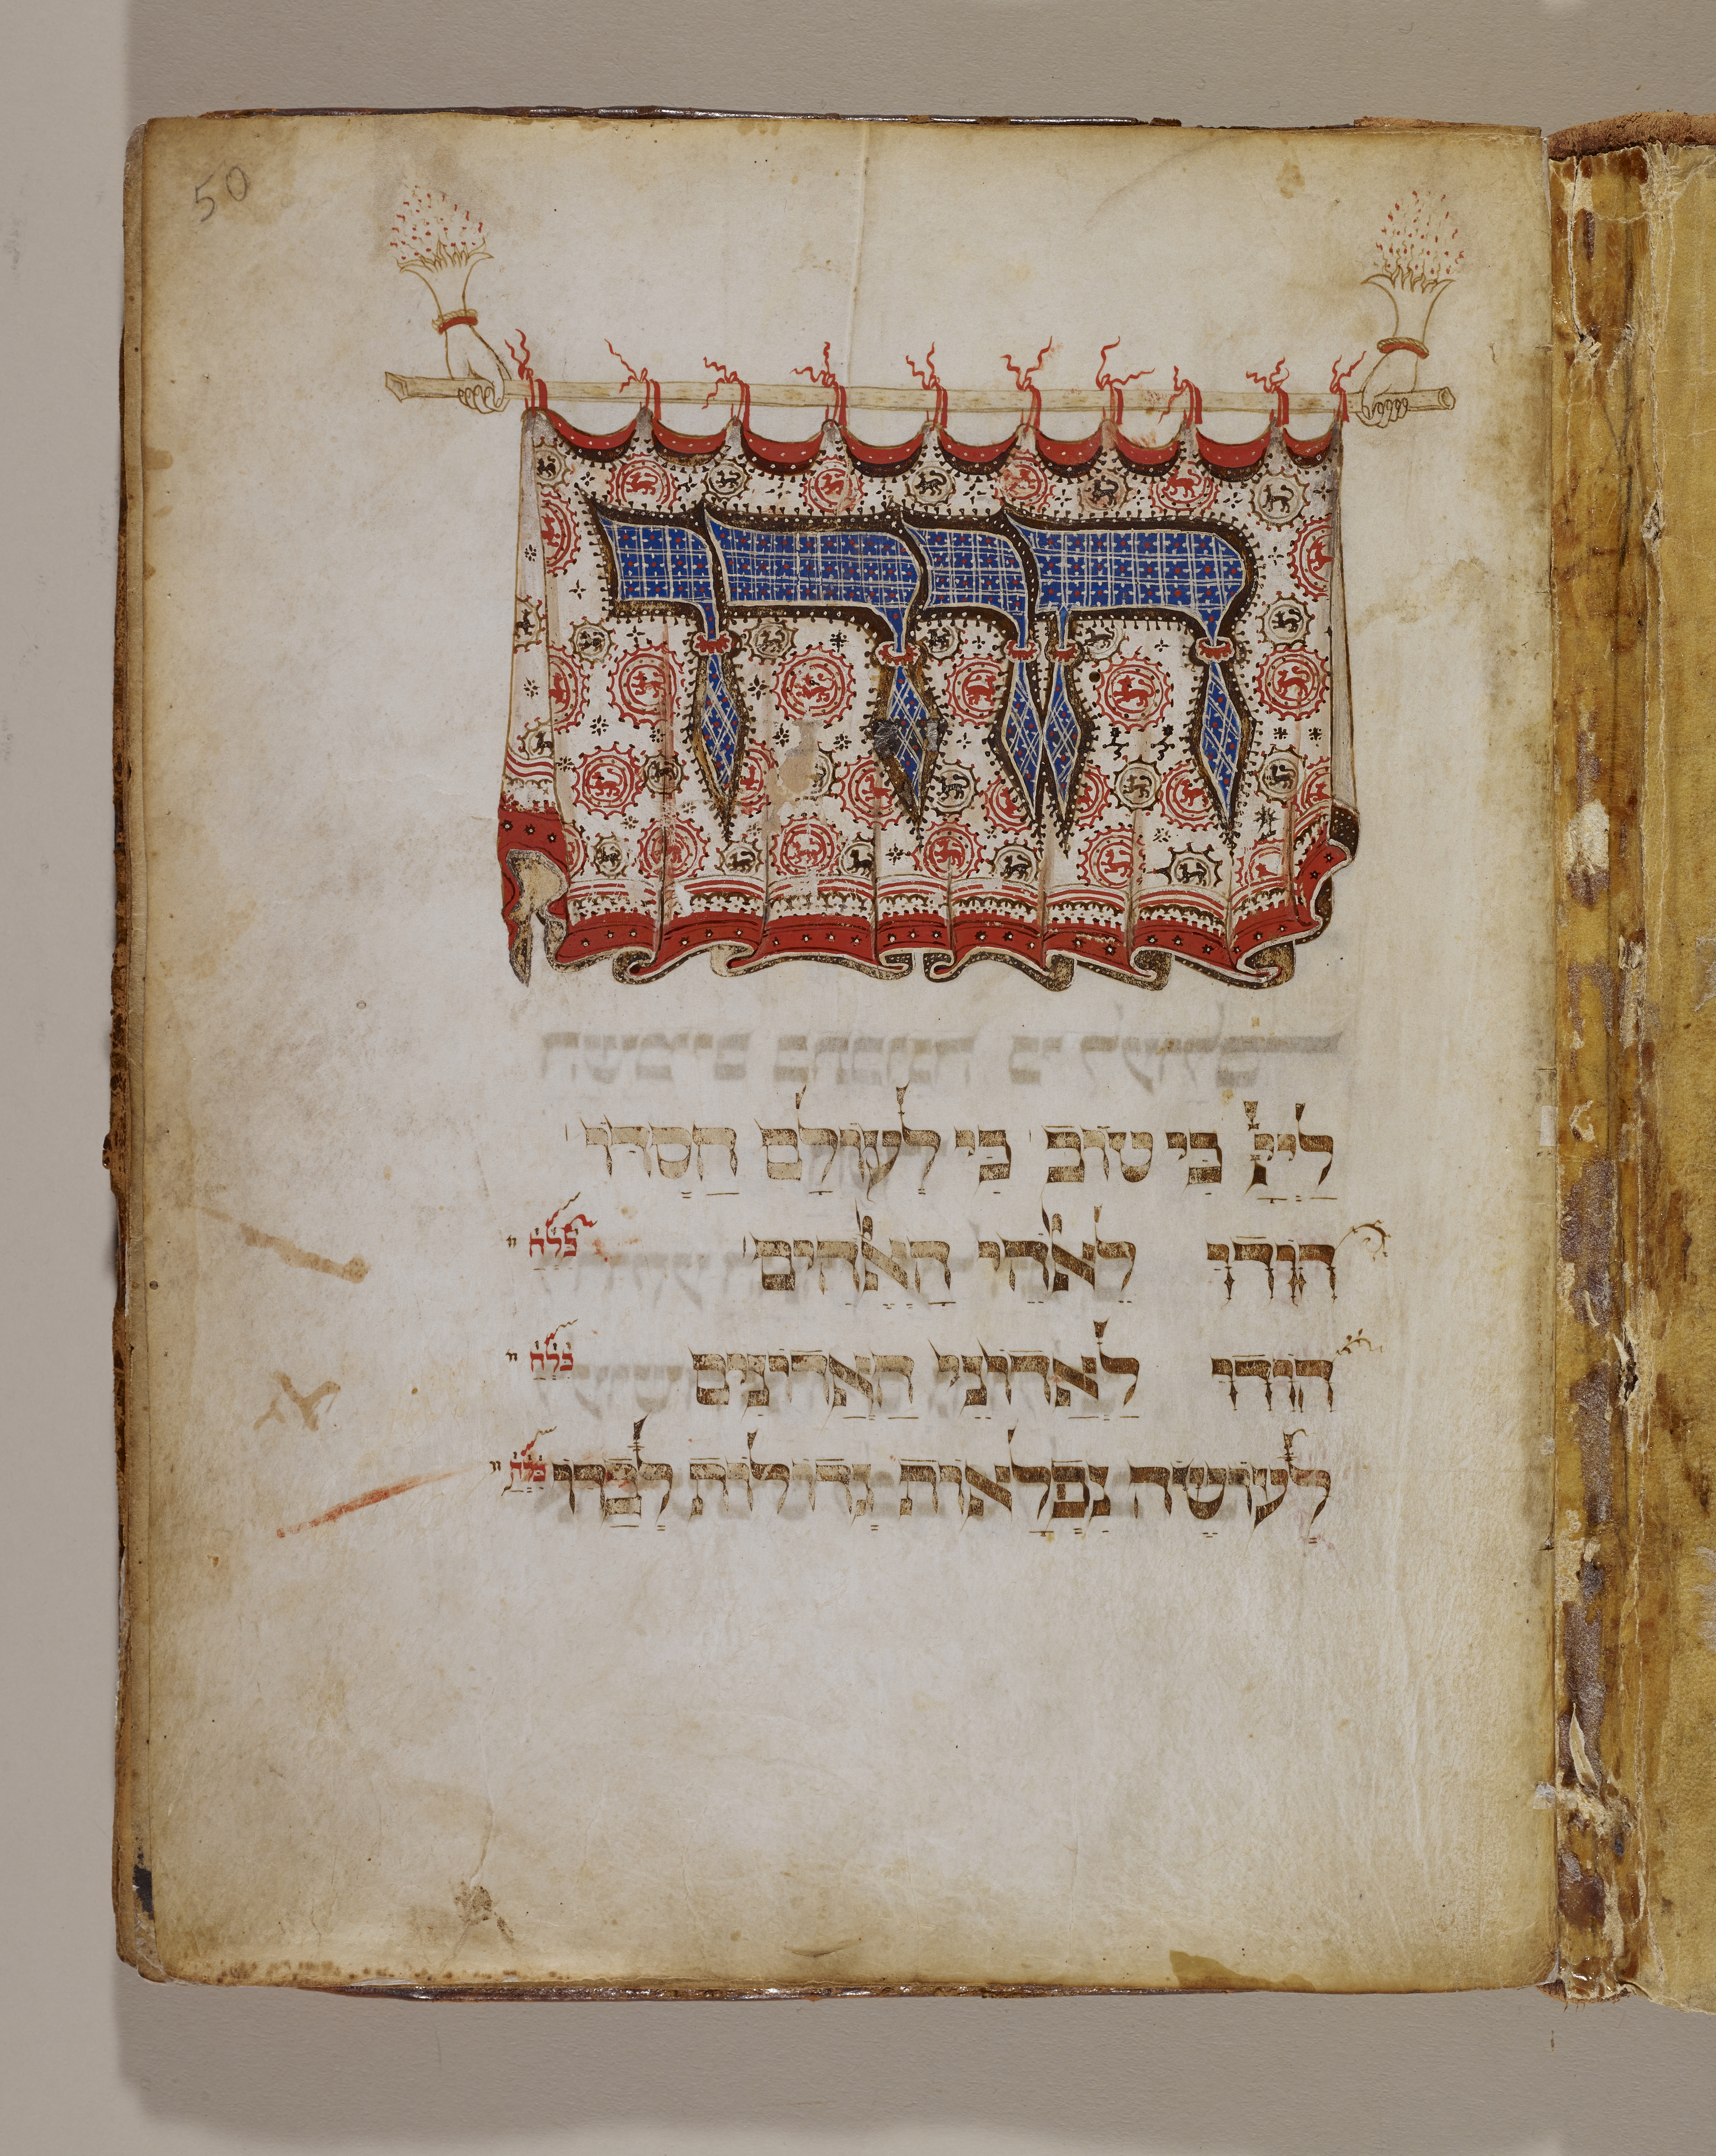 50
הודו
לַיְיָ כִּי טוֹב כִּי לְעוֹלָם חַסְדּוֹ
הוֹדוּ לֵאלֹהֵי הָאֱלֹהִים כלח
הוֹדוּ לַאֲדוֹנֵי הָאֲדוֹנִים כלח
לְעוֹשֵׂה נִפְלָאוֹת גְדוֹלוֹת לְבַדּוֹ כלח